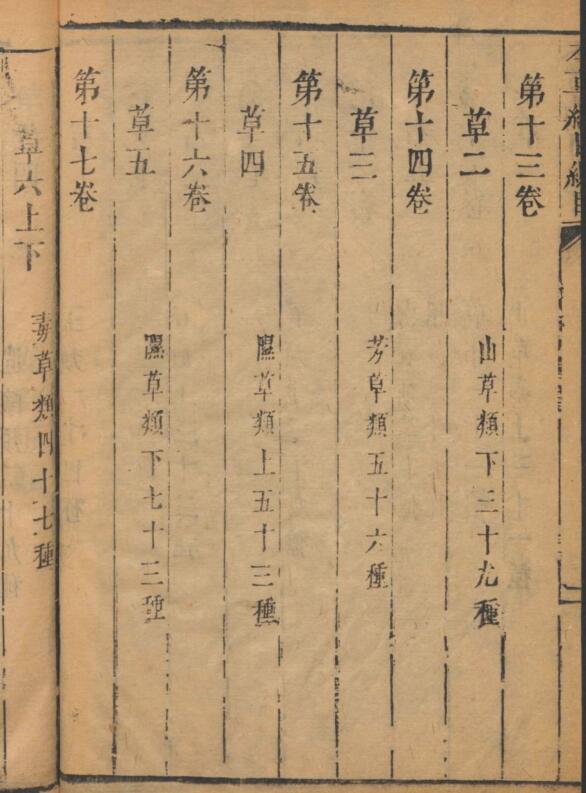 第十三卷
草二
山草類下三十九種
第十四卷
草三
芳草類五十六種
第十五卷
草四
隰草類上五十三種
第十六卷
草五
隰草類下七十三種
第十七卷
草六上下
毒草類四十七種